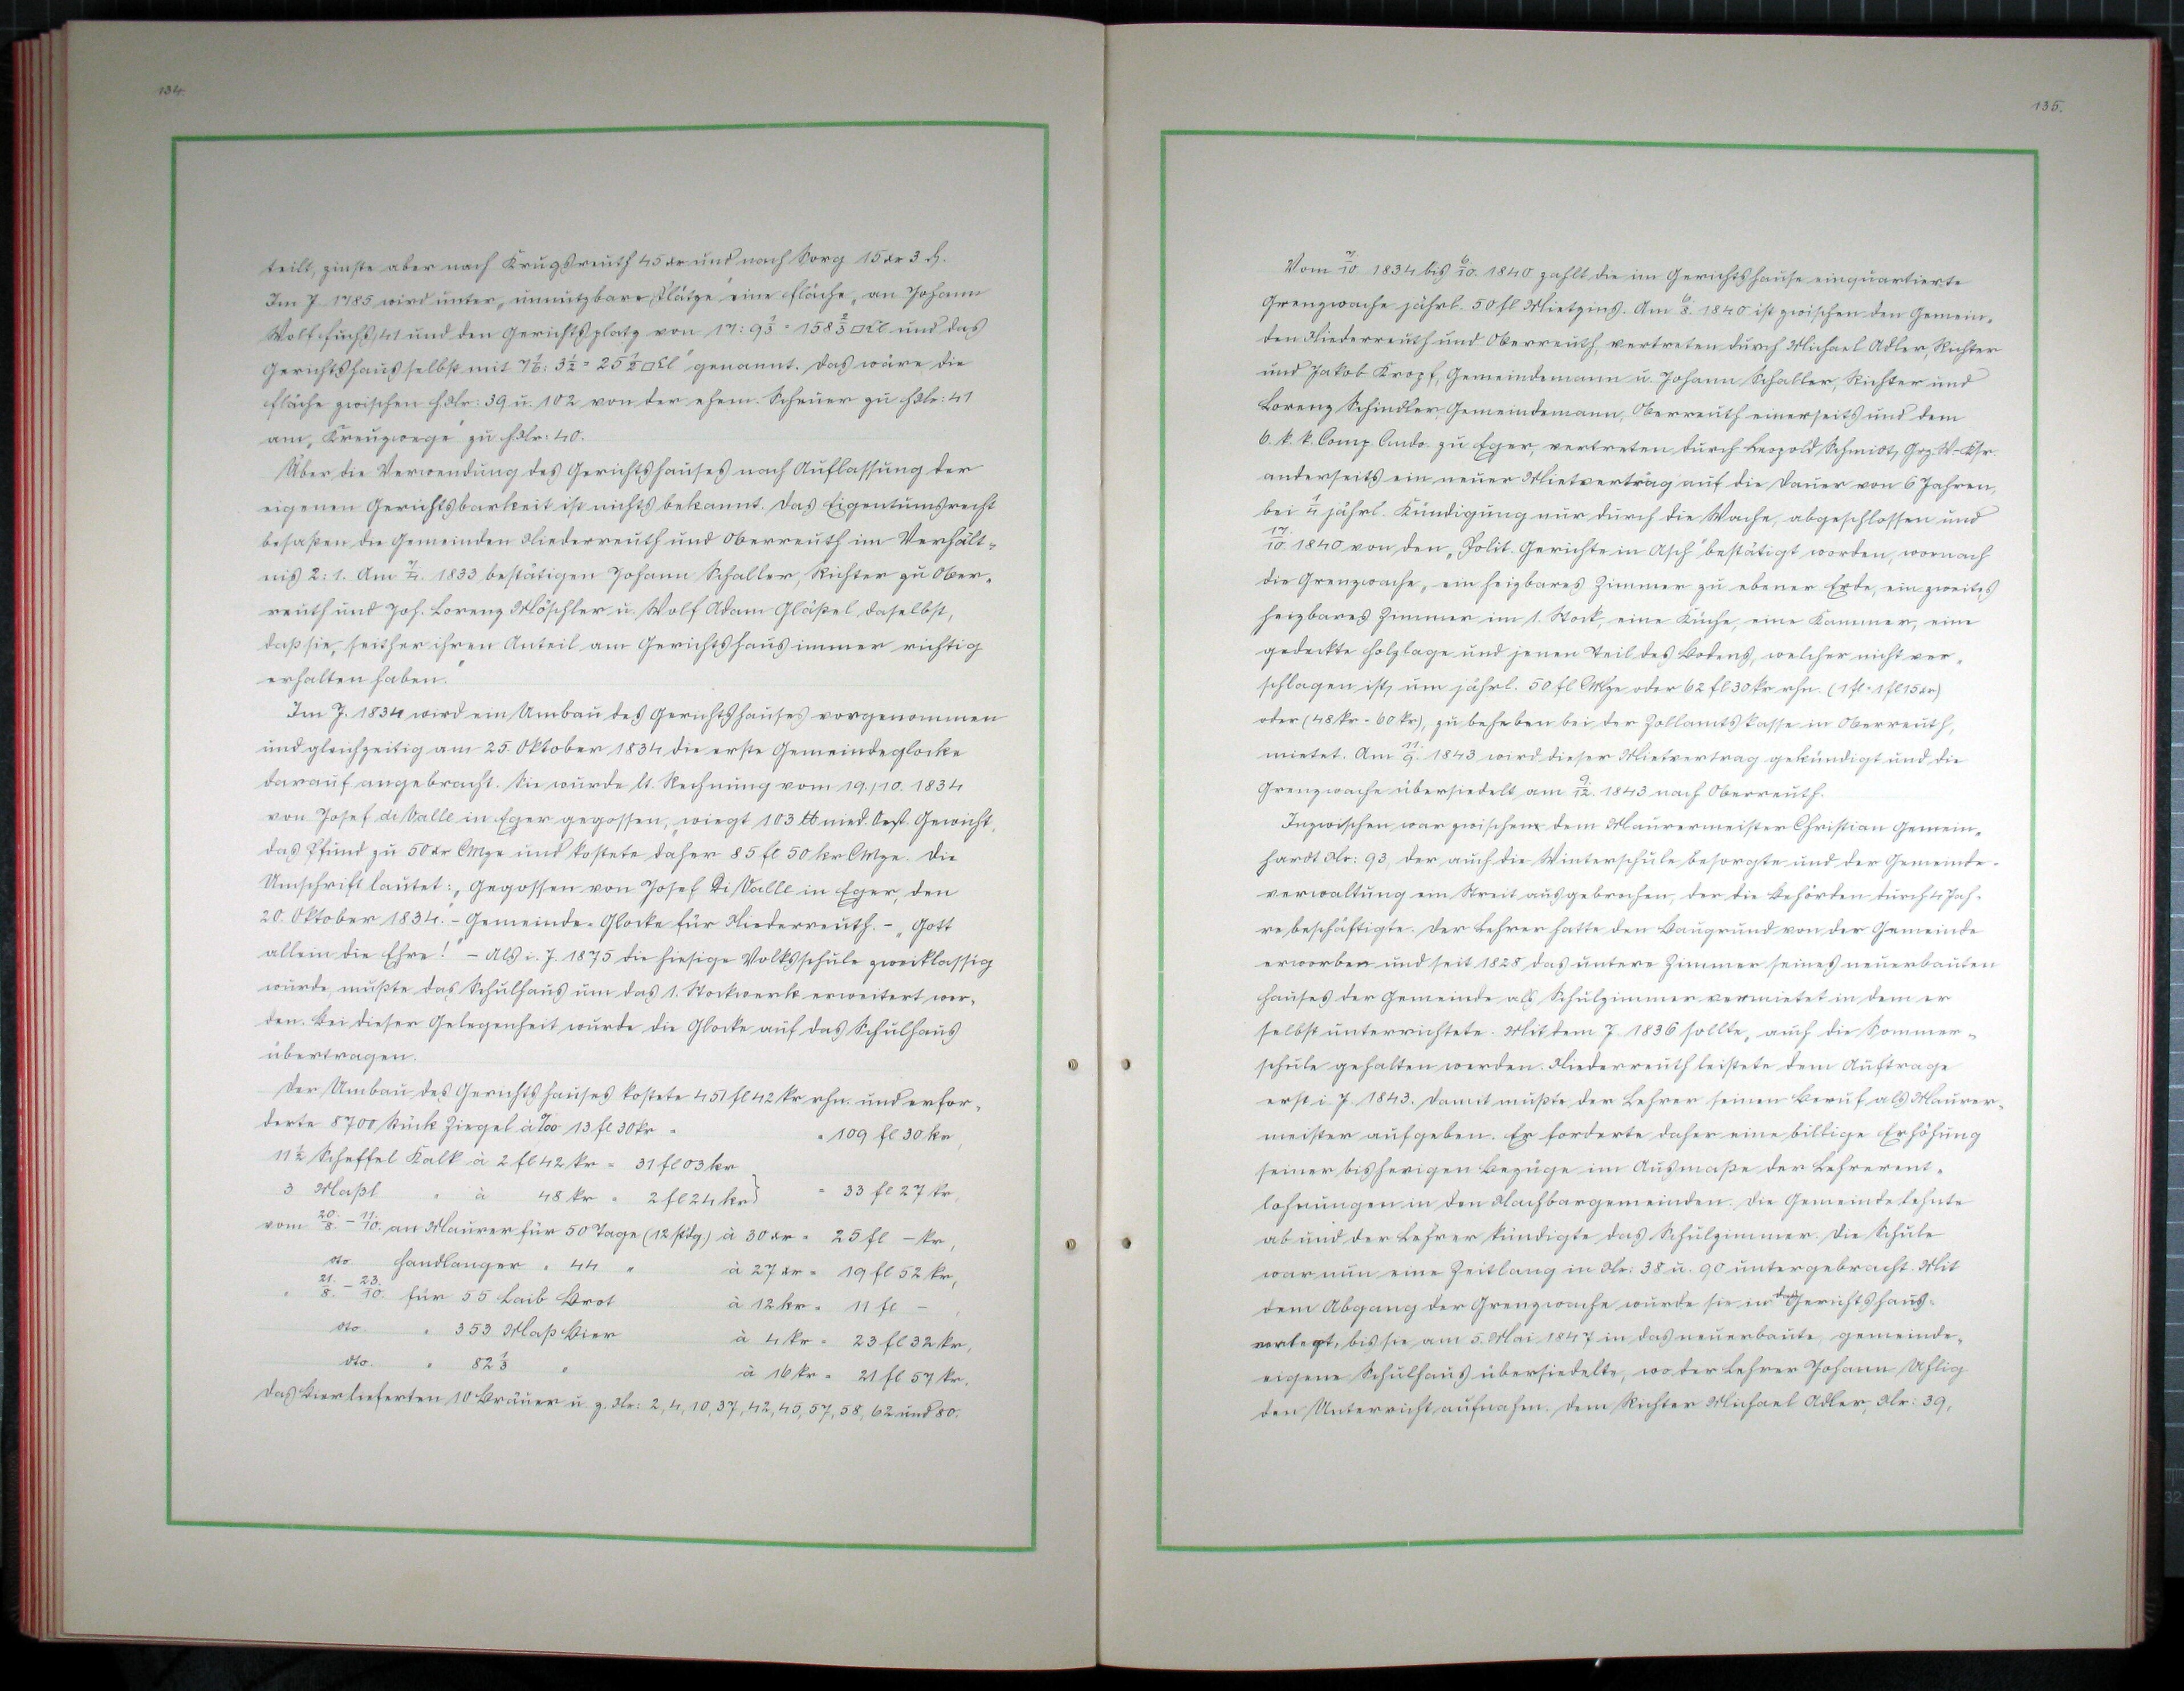 134.
teilt, zinste aber nach Krugsreuth 45 xr und nach Sorg 15 xr 3 ₰.
Im J. 1785 wird unter „unnutzbare Plätze“ eine Fläche „an Johann
Wolf Fuchs, 41 und den Gerichtsplatz von 17 : 9 1/3 = 158 2/3 □Kl und das
Gerichtshaus selbst mit 7 1/6 : 3 1/2 = 25 1/2 □Kl“ genannt. Das wäre die
Fläche zwischen H.Nr: 39 u. 102 von der ehem. Scheuer zu HNr: 41
am „Kreuzwege“ zu HNr: 40.
Über die Verwendung des Gerichtshauses nach Auflassung der
eigenen Gerichtsbarkeit ist nichts bekannt. Das Eigentumsrecht
besaßen die Gemeinden Niederreuth und Oberreuth im Verhält-
nis 2 : 1. Am 7./4. 1833 bestätigen Johann Schaller, Richter zu Ober-
reuth und Joh. Lorenz Möschler u. Wolf Adam Gläßel daselbst,
daß sie „seither ihren Anteil am Gerichtshaus immer richtig
erhalten haben.“
Im J. 1834 wird ein Umbau des Gerichtshauses vorgenommen
und gleichzeitig am 25. Oktober 1834 die erste Gemeindeglocke
darauf angebracht. Sie wurde lt. Rechnung vom 19./10. 1834
von Josef di Valle in Eger gegossen, „wiegt 103 ℔ nied. Oest. Gewicht,
das Pfund zu 50 xr CMze und kostete daher 85 fl 50 kr CMze. Die
Umschrift lautet: „Gegossen von Josef Di Valle in Eger, den
20. Oktober 1834.“ – Gemeinde-Glocke für Niederreuth. – „Gott
allein die Ehre!“ – Als i. J. 1875 die hiesige Volksschule zweiklassig
wurde, mußte das Schulhaus um das 1. Stockwerk erweitert wer-
den. Bei dieser Gelegenheit wurde die Glocke auf das Schulhaus
übertragen.
Der Umbau des Gerichtshauses kostete 451 fl 42 kr rhn. und erfor-
derte 8700 Stück Ziegel à ‰ 13 fl 30 kr = = 109 fl 30 kr,
11 1/2 Scheffel Kalk à 2 fl 42 kr = 31 fl 03 kr
3 Maßl " à 48 kr = 2 fl 24 kr } = 33 fl 27 kr,
vom 20./8. – 11./10. an Maurer für 50 Tage (12 stdg) à 30 xr = 25 fl – kr,
dto Handlanger " 44 " à 27 xr = 19 fl 52 kr,
" 21./8. – 23./10. für 55 Laib Brot à 12 kr = 11 fl – ,
dto. " 353 Maß Bier à 4 kr = 23 fl 32 kr,
dto. " 82 1/3 " à 16 kr = 21 fl 57 kr.
Das Bier lieferten 10 Bräuer u. z. Nr: 2, 4, 10, 37, 42, 45, 57, 58, 62 und 80.
135.
Vom 7./10. 1834 bis 6./10. 1840 zahlt die im Gerichtshause einquartierte
Grenzwache jährl. 50 fl Mietzins. Am 6./8. 1840 ist zwischen den Gemein-
den Niederreuth und Oberreuth, vertreten durch Michael Adler, Richter
und Jakob Kropf, Gemeindemann u. Johann Schaller, Richter und
Lorenz Schindler, Gemeindemann, Oberreuth einerseits und dem
6. k. k. Comp. Cmdo. zu Eger, vertreten durch Leopold Schmidt,
anderseits ein neuer Mietvertrag auf die Dauer von 6 Jahren,
bei 1/4 jährl. Kündigung nur durch die Wache, abgeschlossen und
17./10. 1840 von den „Polit. Gerichte in Asch“ bestätigt worden, wornach
die Grenzwache „ein heizbares Zimmer zu ebener Erde, ein zweites
heizbares Zimmer im 1. Stock, eine Küche, eine Kammer, eine
gedeckte Holzlage und jenen Teil des Bodens, welcher nicht ver-
schlagen ist, um jährl. 50 fl CMze oder 62 fl 30 kr rhn. (1 fl = 1 fl 15 xr)
oder (48 kr = 60 kr), zu beheben bei der Zollamtskasse in Oberreuth,
mietet. Am 11./9. 1843 wird dieser Mietvertrag gekündigt und die
Grenzwache übersiedelt am 9./12. 1843 nach Oberreuth.
Inzwischen war zwischen dem Maurermeister Christian Gemein-
hardt Nr: 93, der auch die Winterschule besorgte und der Gemeinde-
verwaltung ein Streit ausgebrochen, der die Behörden durch 4 Jah-
re beschäftigte. Der Lehrer hatte den Baugrund von der Gemeinde
erworben und seit 1828 das untere Zimmer seines neuerbauten
Hauses der Gemeinde als Schulzimmer vermietet in dem er
selbst unterrichtete. Mit dem J. 1836 sollte „auch die Sommer-
schule gehalten werden. Niederreuth leistete dem Auftrage
erst i. J. 1843. Damit mußte der Lehrer seinen Beruf als Maurer-
meister aufgeben. Er forderte daher eine billige Erhöhung
seiner bisherigen Bezüge im Ausmaße der Lehrerent-
lohnungen in den Nachbargemeinden. Die Gemeinde lehnte
ab und der Lehrer kündigte das Schulzimmer. Die Schule
war nun eine Zeitlang in Nr: 38 u. 90 untergebracht. Mit
dem Abgang der Grenzwache wurde sie in das Gerichtshaus
verlegt, bis sie am 5. Mai 1847 in das neuerbaute, gemeinde-
eigene Schulhaus übersiedelte, wo der Lehrer Johann Uhlig
den Unterricht aufnahm. Dem Richter Michael Adler, Nr: 39,